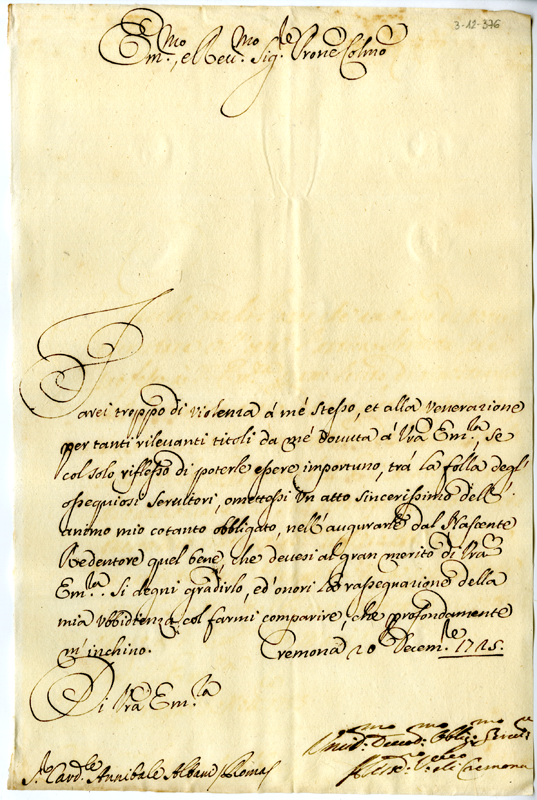 3-12-376
Em.mo, e Rev.mo Sig.re Prone Colmo
Farei troppo di violenza á mé stesso, et alla venerazione
per tanti rilevanti titoli da mé dovuta á Vrã Em.za, se
col solo riflesso di poterle essere importuno, trá la folla degl'
ossequiosi servitori, omettessi un atto sincerissimo dell'
animo mio cotanto obbligato, nell'augurarle dal Nascente
Redentore quel bene, che devesi al gran merito di Vrã
Em.za. Si degni gradirlo, ed'onori la rassegnazione della
mia ubbidienza col farmi comparire, che profondamente
m'inchino. Cremona 20 Decem.re 1725.
Di Vrã Em.za
Umil.mo Devod.mo Obblig.mo
S.r Card.le Annibale Albani Roma
Vescº di Cremona